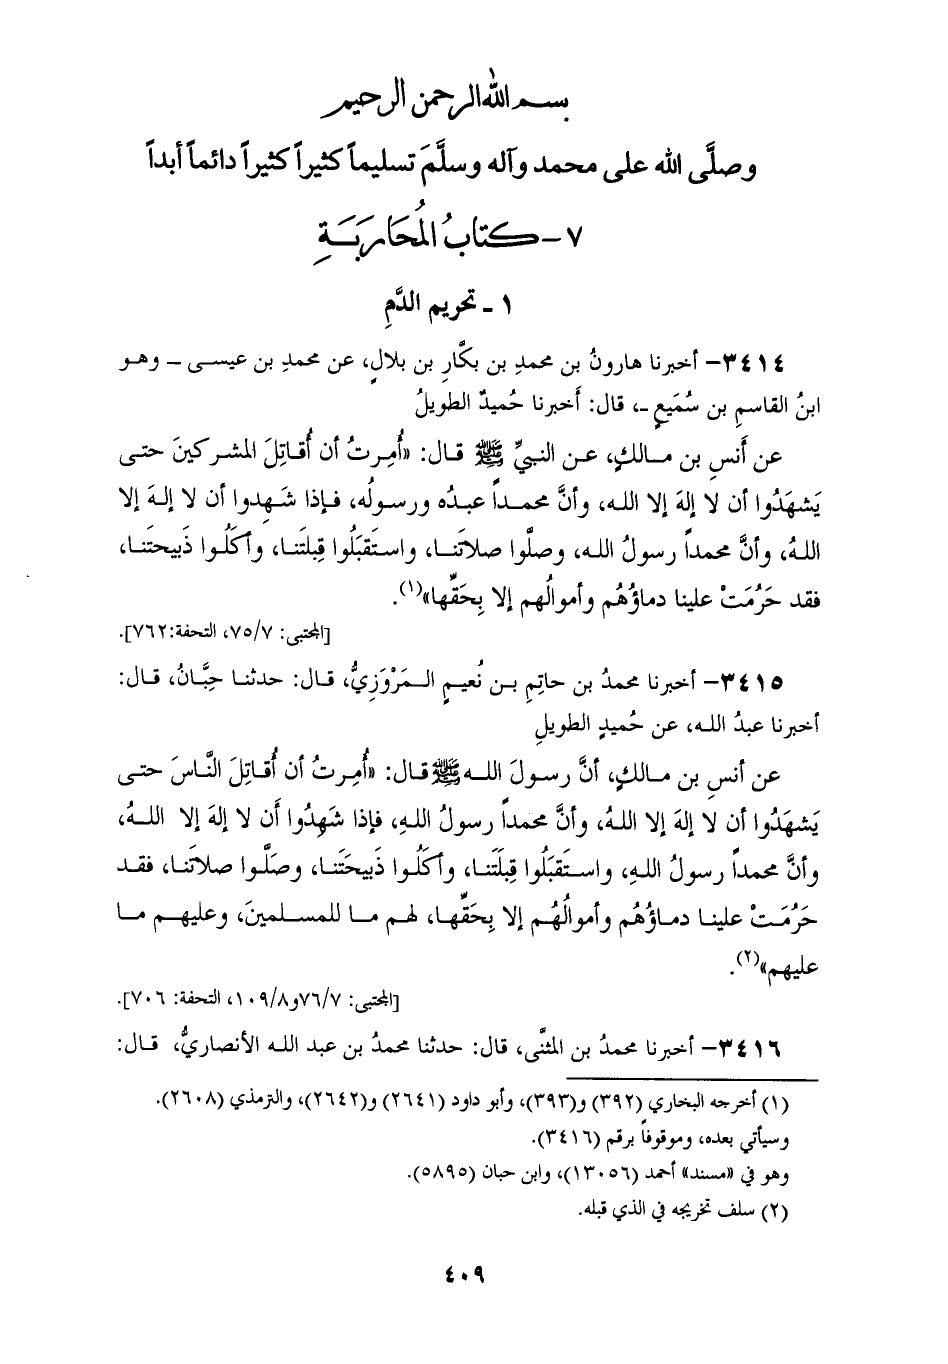 بسم الله الرحمن الرحيم
وصلَّى الله على محمد وآله وسلَّمَ تسليماً كثيراً كثيراً دائماً أبداً
٧- كتابُ المُحَارَبَةِ
١ ـ تحريم الدَّمِ
٣٤١٤- أخبرنا هارونُ بن محمدِ بن بكَّارِ بن بلالٍ، عن محمدِ بن عيسى – وهو
ابنُ القاسمِ بن سُمَيعٍ ـ، قال: أَخبرنا حُميدٌ الطويلُ
عن أَنسِ بن مالكٍ، عن النبيِّ ﷺ قال: «أُمِرتُ أن أُقاتِلَ المشركينَ حتى
يَشهَدُوا أن لا إلهَ إلا الله، وأنَّ محمداً عبدُه ورسولُه، فإذا شَهِدوا أن لا إلهَ إلا
اللهُ، وأنَّ محمداً رسولُ الله، وصلوا صلاتَنا، واستَقبَلُوا قِبلَتَنا، وأكَلُوا ذَبيحتَنا،
فقد حَرُمَتْ علينا دماؤُهُم وأموالُهم إلا بِحَقِّها»(١).
[المجتبى: ٧٥/٧، التحفة:٧٦٢].
٣٤١٥- أخبرنا محمدُ بن حاتمِ بن نُعيمٍ المَرْوَزِيُّ، قال: حدثنا حِبَّانُ، قال:
أخبرنا عبدُ الله، عن حُميدٍ الطويلِ
عن أنسِ بن مالكٍ، أنَّ رسولَ الله ﷺ قال: «أُمِرتُ أن أُقاتِلَ النَّاسَ حتى
يَشهَدُوا أن لا إلهَ إلا اللهُ، وأنَّ محمداً رسولُ اللهِ، فإذا شَهِدُوا أَن لا إلهَ إلا اللهُ،
وأنَّ محمداً رسولُ اللهِ، واستَقبَلُوا قِبلَتَنا، وأكَلُوا ذَبيحَتَنا، وصَلَّوا صلاتَنا، فقد
حَرُمَتْ علينا دماؤُهُم وأموالُهُم إلا بِحَقِّها، لهم ما للمسلمينَ، وعليهم ما
عليهم»(٢).
[المجتبى: ٧٦/٧و١٠٩/٨، التحفة: ٧٠٦].
٣٤١٦- أخبرنا محمدُ بن المثنَّى، قال: حدثنا محمدُ بن عبد الله الأنصاريُّ، قال:
(١) أخرجه البخاري (٣٩٢) و(٣٩٣)، وأبو داود (٢٦٤١) و(٢٦٤٢)، والترمذي (٢٦٠٨).
وسيأتي بعده، وموقوفاً برقم (٣٤١٦).
وهو في «مسند» أحمد (١٣٠٥٦)، وابن حبان (٥٨٩٥).
(٢) سلف تخريجه في الذي قبله.
٤٠٩